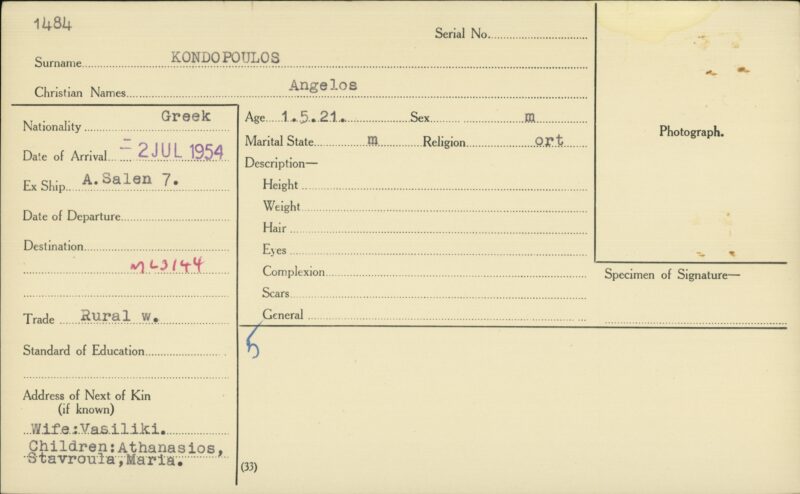 1484
Serial No.
Surname KONDOPOULOS
Christian Names Angelos
Nationality Greek
Date of Arrival - 2 JUL 1954
Ex Ship A.Salen 7.
Date of Departure
Destination
ML3144
Trade Rural w.
Standard of Education
Address of Next of Kin
(if known)
Wife:Vasiliki.
Children:Athanasios,
Stavroula,Maria.
Age 1.5.21. Sex m
Marital State m Religion ort
Description—
Height
Weight
Hair
Eyes
Complexion
Scars
General
5
(33)
Photograph.
Specimen of Signature—